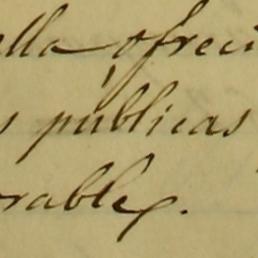 ella ofreci
s públicas
rables.